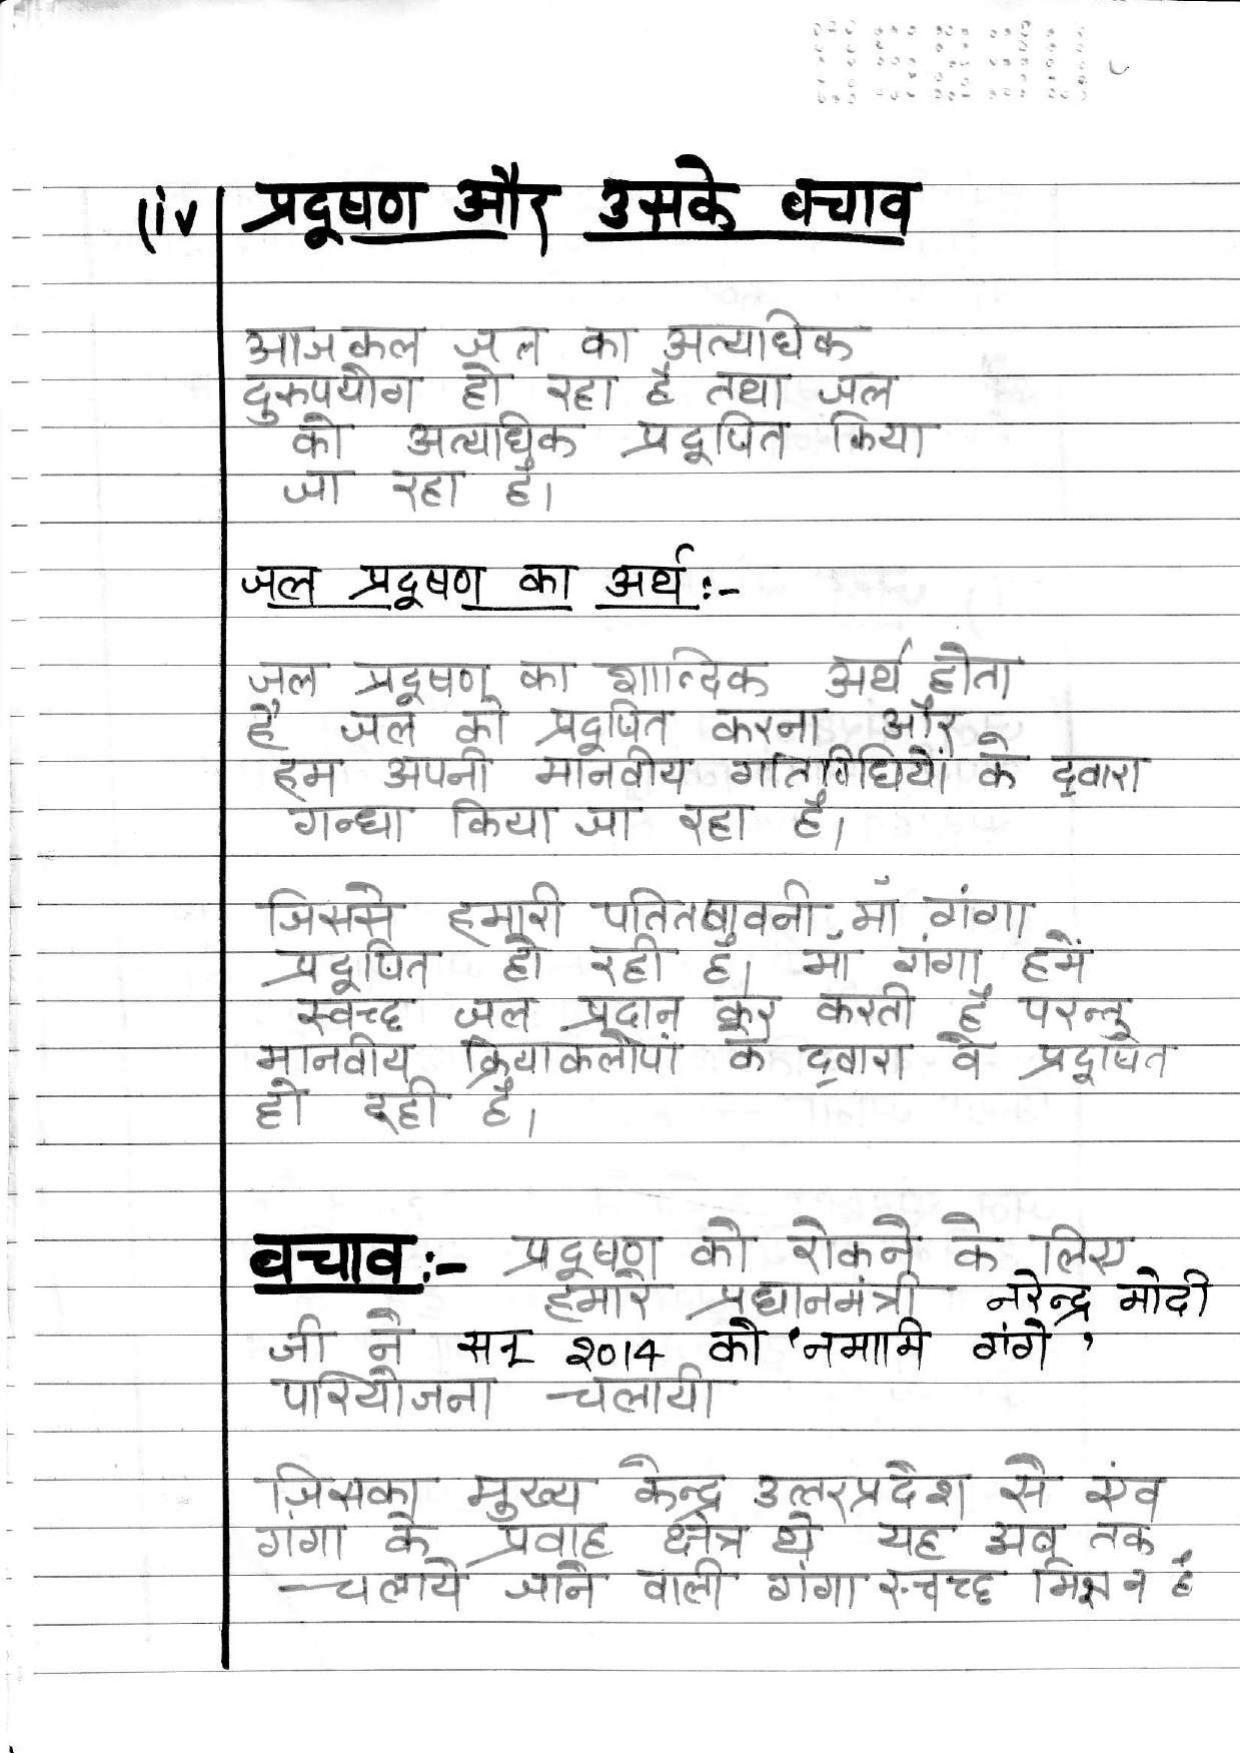 (iv प्रदूषण और उसके बचाव
आजकल जल का अत्याधिक
दुरुपयोग हो रहा है तथा जल
को अत्याधिक प्रदूषित किया
जा रहा है।
जल प्रदूषण का अर्थ:-
जल प्रदूषण का शाब्दिक अर्थ होता
है जल को प्रदूषित करना और
हम अपनी मानवीय गतिविधियों के द्वारा
गन्धा किया जा रहा है।
जिससे हमारी पतितपावनी माँ गंगा
प्रदूषित हो रही है। माँ गंगा हमें
स्वच्छ जल प्रदान कर करती है परन्तु
मानवीय क्रियाकलापों के द्वारा वे प्रदूषित
हो रही है।
बचाव:- प्रदूषण को रोकने के लिए
हमारे प्रधानमंत्री नरेन्द्र मोदी
जी ने सन् 2014 को 'नमामि गंगे'
परियोजना चलायी
जिसका मुख्य केन्द्र उत्तरप्रदेश से एंव
गंगा के प्रवाह क्षेत्र थे यह अब तक
चलाये जाने वाली गंगा स्वच्छ मिशन है